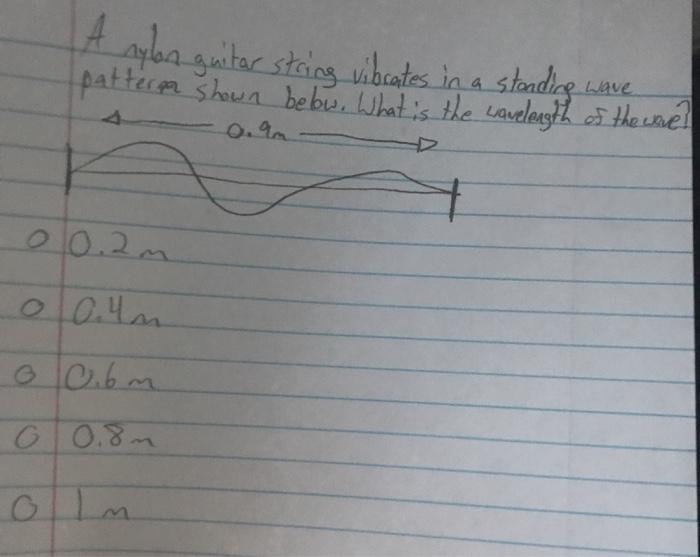 A nylon guitar string vibrates in a standing wave
pattern shown below. What is the wavelength of the wave?
0.9m
0.2m
0.4m
0.6m
0.8m
1m